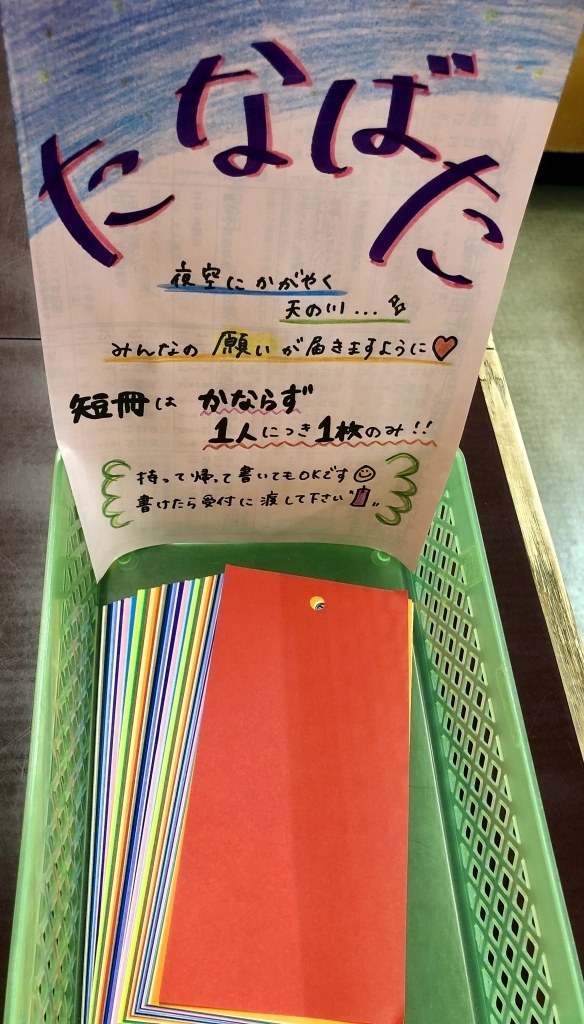 たなばた
夜空にかがやく
天の川...
みんなの願いが届きますように
短冊はかならず
1人につき1枚のみ!!
持って帰って書いてもOKです
書けたら受付に渡して下さい